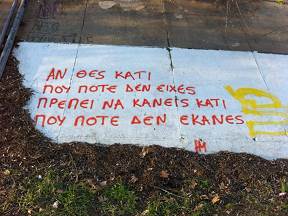 ΑΝ ΘΕς ΚΑΤΙ
ΠΟΥ ΠΟΤΕ ΔΕΝ ΕΙΧΕς
ΠΡΕΠΕΙ ΝΑ ΚΑΝΕΙς ΚΑΤΙ
ΠΟΥ ΠΟΤΕ ΔΕΝ ΕΚΑΝΕς